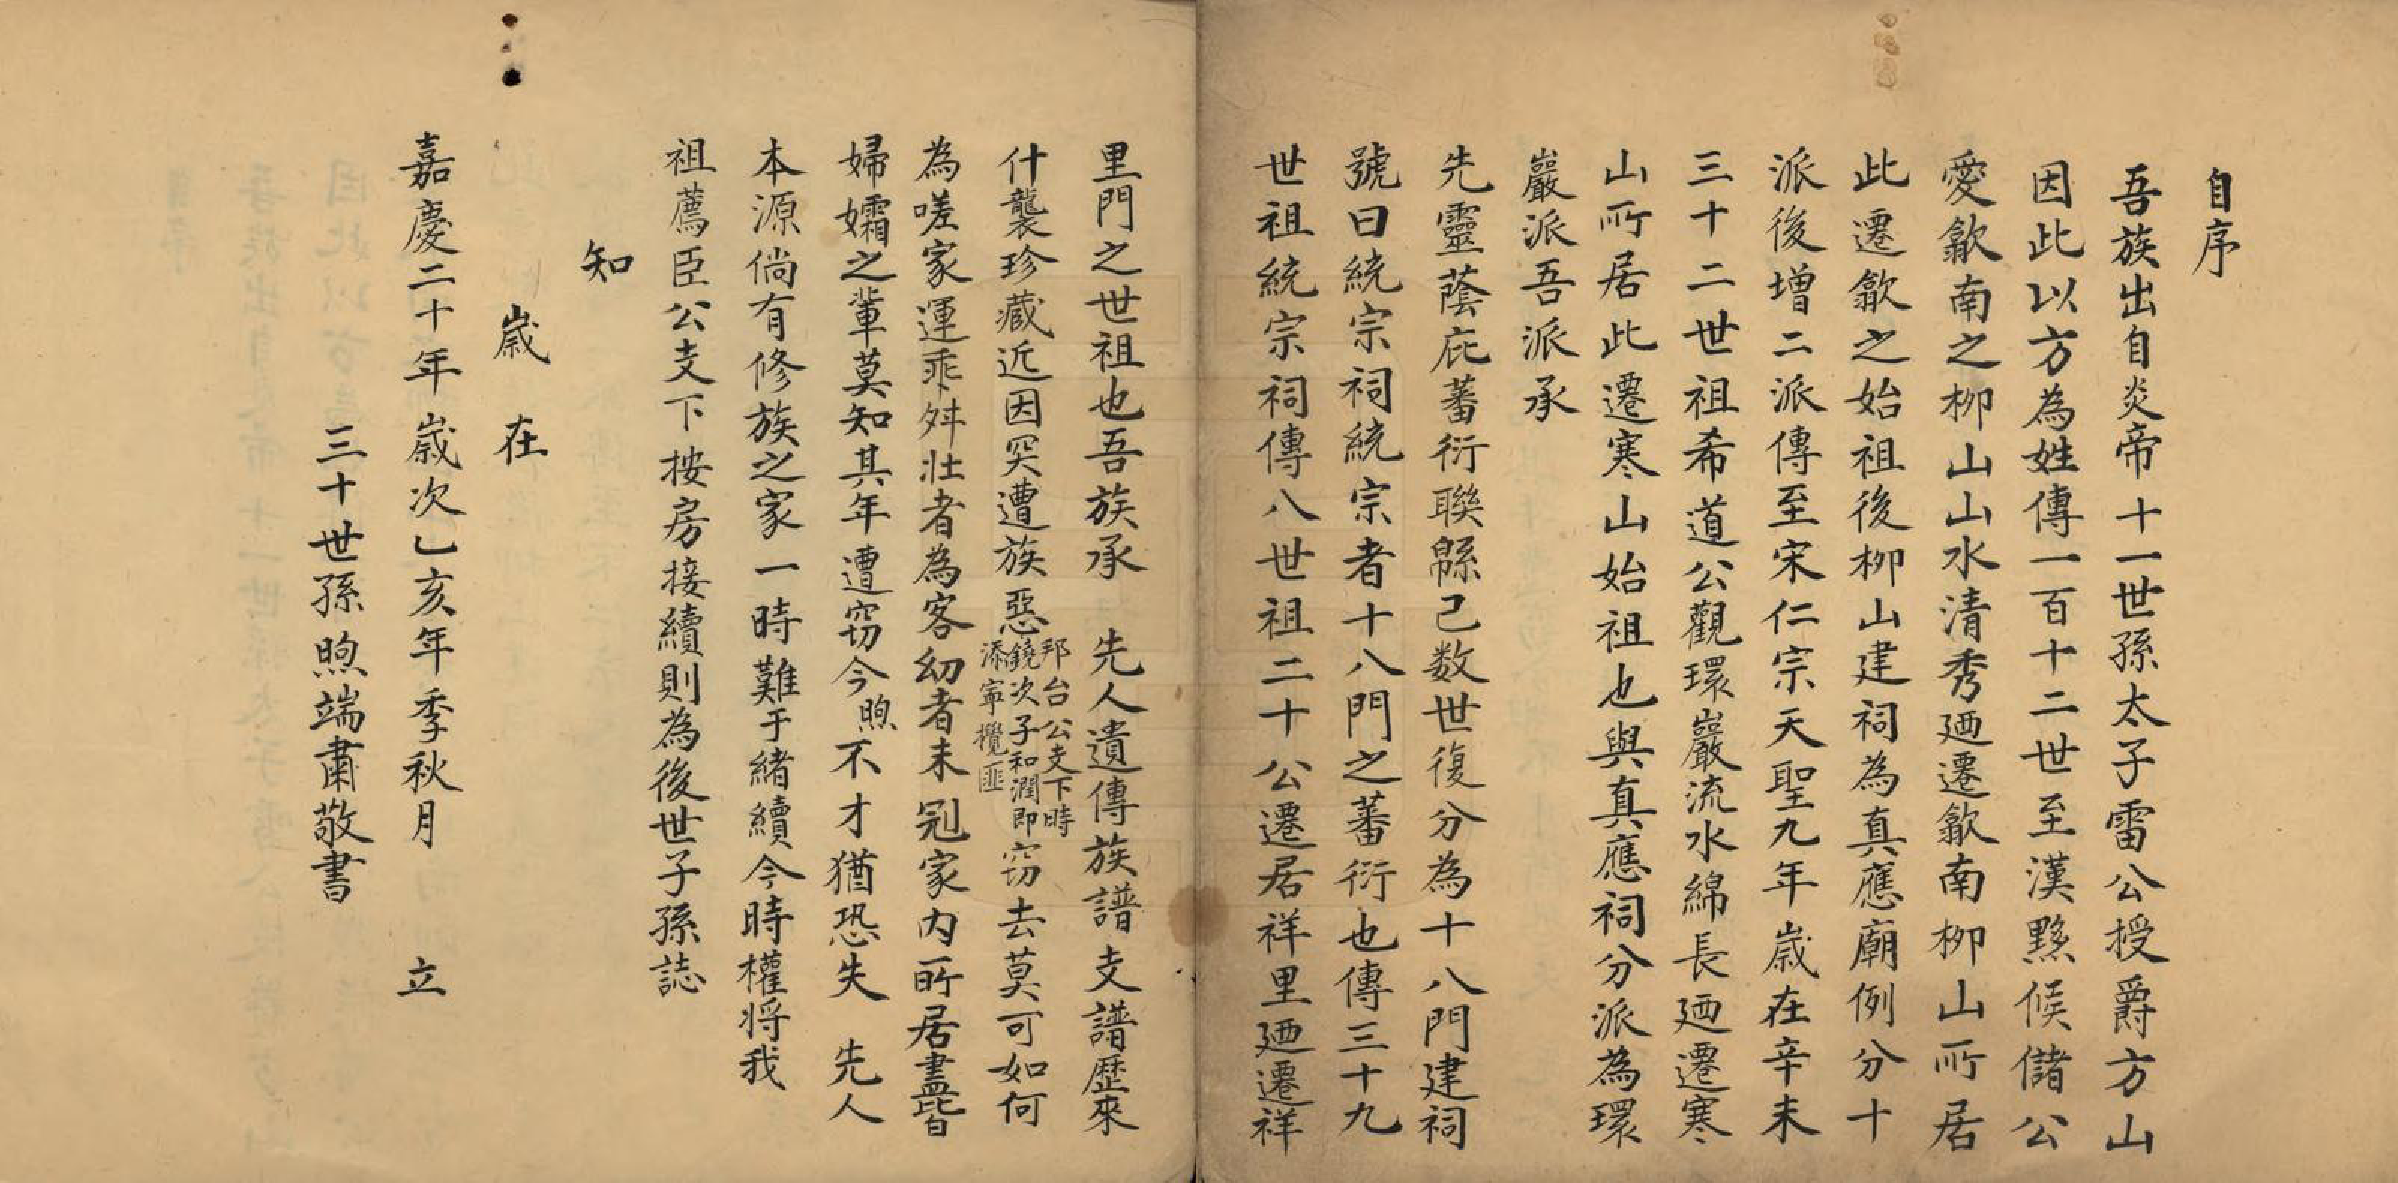 自序
吾族出自炎帝十一世孫太子雷公授爵方山
因此以方為姓傳一百十二世至漢黟候儲公
愛歙南之柳山山水清秀廼遷歙南柳山所居
此遷歙之始祖後柳山建祠為真應廟例分十
派後增二派傳至宋仁宗天聖九年歲在辛未
三十二世祖希道公觀環巖流水綿長廼遷寒
山所居此遷寒山始祖也與真應祠分派為環
巖派吾派承
先靈蔭庇蕃衍聯緜已数世復分為十八門建祠
號曰統宗祠統宗者十八門之蕃衍也傳三十九
世祖統宗祠傳八世祖二十公遷居祥里廼遷祥
里門之世祖也吾族承 先人遺傳族譜支譜歷來
什襲珍藏近因突遭族惡邦台公支下時鐃次子和潤即添寧攬匪窃去莫可如何
為嗟家運乖舛壯者為客幼者未冠家內所居盡皆
婦孀之輩莫知其年遭窃今煦不才猶恐失 先人
本源倘有修族之家一時難于緒續今時權将我
祖薦臣公支下按房接續則為後世子孫誌
知
歲在
嘉慶二十年歲次乙亥年季秋月 立
三十世孫煦端肅敬書